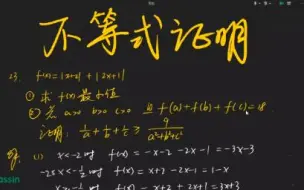 不等式证明
23. f(x)=|x+2|+|2x+1|
① 求 f(x)最小值
② 若 a>0 b>0 c>0 且 f(a)+f(b)+f(c)=18
证明: 1/a+1/b+1/c≥9/(a²+b²+c²)
① x<-2时 f(x)=-x-2-2x-1=-3x-3
-2≤x<-1/2时 f(x)=x+2-2x-1=1-x
f(x)=x+2+2x+1=3x+3
assin